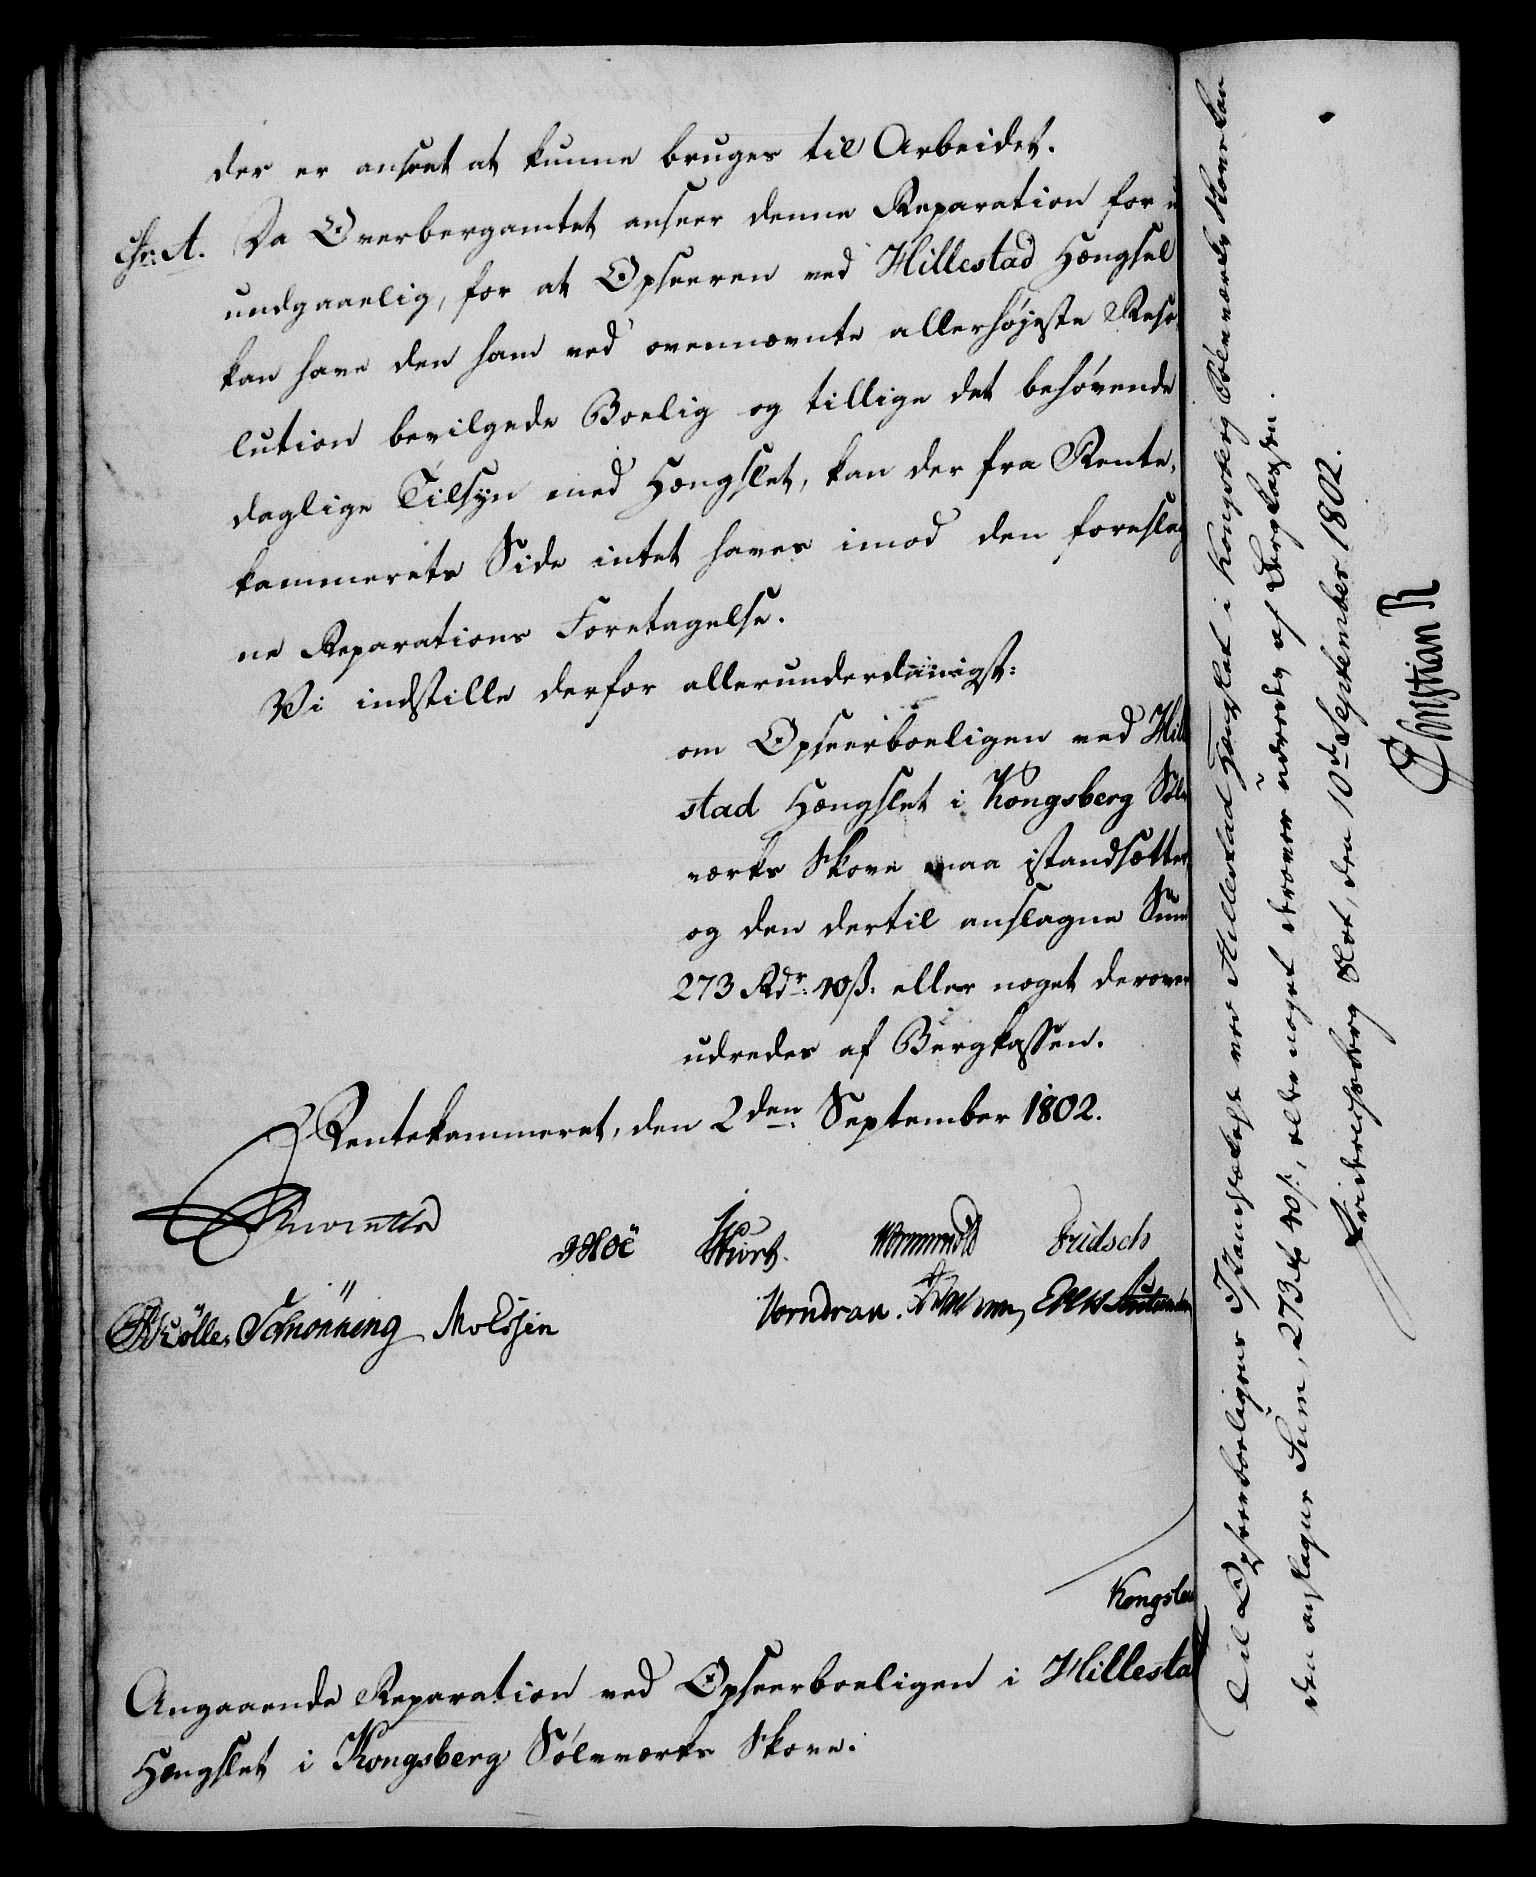 der er anseet at kunne bruges til Arbeidet.
Da Overbergamtet anseer denne Reparation for u
undgaaelig, for at Opseeren ved Hillestad Hængsel
kan have den ham ved ovennævnte allerhøjeste Reso-
lution bevilgede Boelig og tillige det behøvende
daglige Tilsyn med Hængslet, kan der fra Rente-
kammerets Side intet haves imod den foreslag
ne Reparations Foretagelse.
Vi indstille derfor allerunderdanigst:
om Opseerboeligen ved Hille
stad Hængslet i Kongsberg Sølv
værks Skove maa istandsættes
og den dertil anslagne Sum
273 Rdr. 10 ß. eller noget derover
udredes af Bergkassen.
Rentekammeret, den 2den September 1802.
Wormskiold Fridsch
Schönning
Vorndran.
Kongsber
Angaaende Reparation ved Opseerboeligen i Hillestad
Hængslet i Kongsberg Sølvværks Skove.
Til Opseerboeligens Istandsættelse ved Hillestad Hængslet i Kongsberg Sølvværks Skove kan
den anslagne Sum, 273 Rdr 10 ß, eller noget derover udredes af Bergkassen.
Friderichsberg Slot, den 10de September 1802.
Christian R